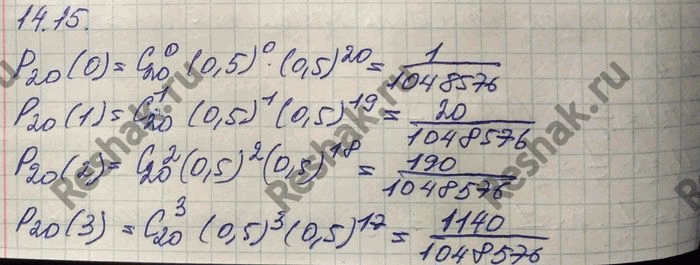 14.15.
P₂₀(0) = C₂₀⁰ (0,5)⁰ · (0,5)²⁰ = 1/1048576
P₂₀(1) = C₂₀¹ (0,5)¹ (0,5)¹⁹ = 20/1048576
P₂₀(2) = C₂₀² (0,5)² (0,5)¹⁸ = 190/1048576
P₂₀(3) = C₂₀³ (0,5)³ (0,5)¹⁷ = 1140/1048576
Reshak.ru
Reshak.ru
Reshak.ru